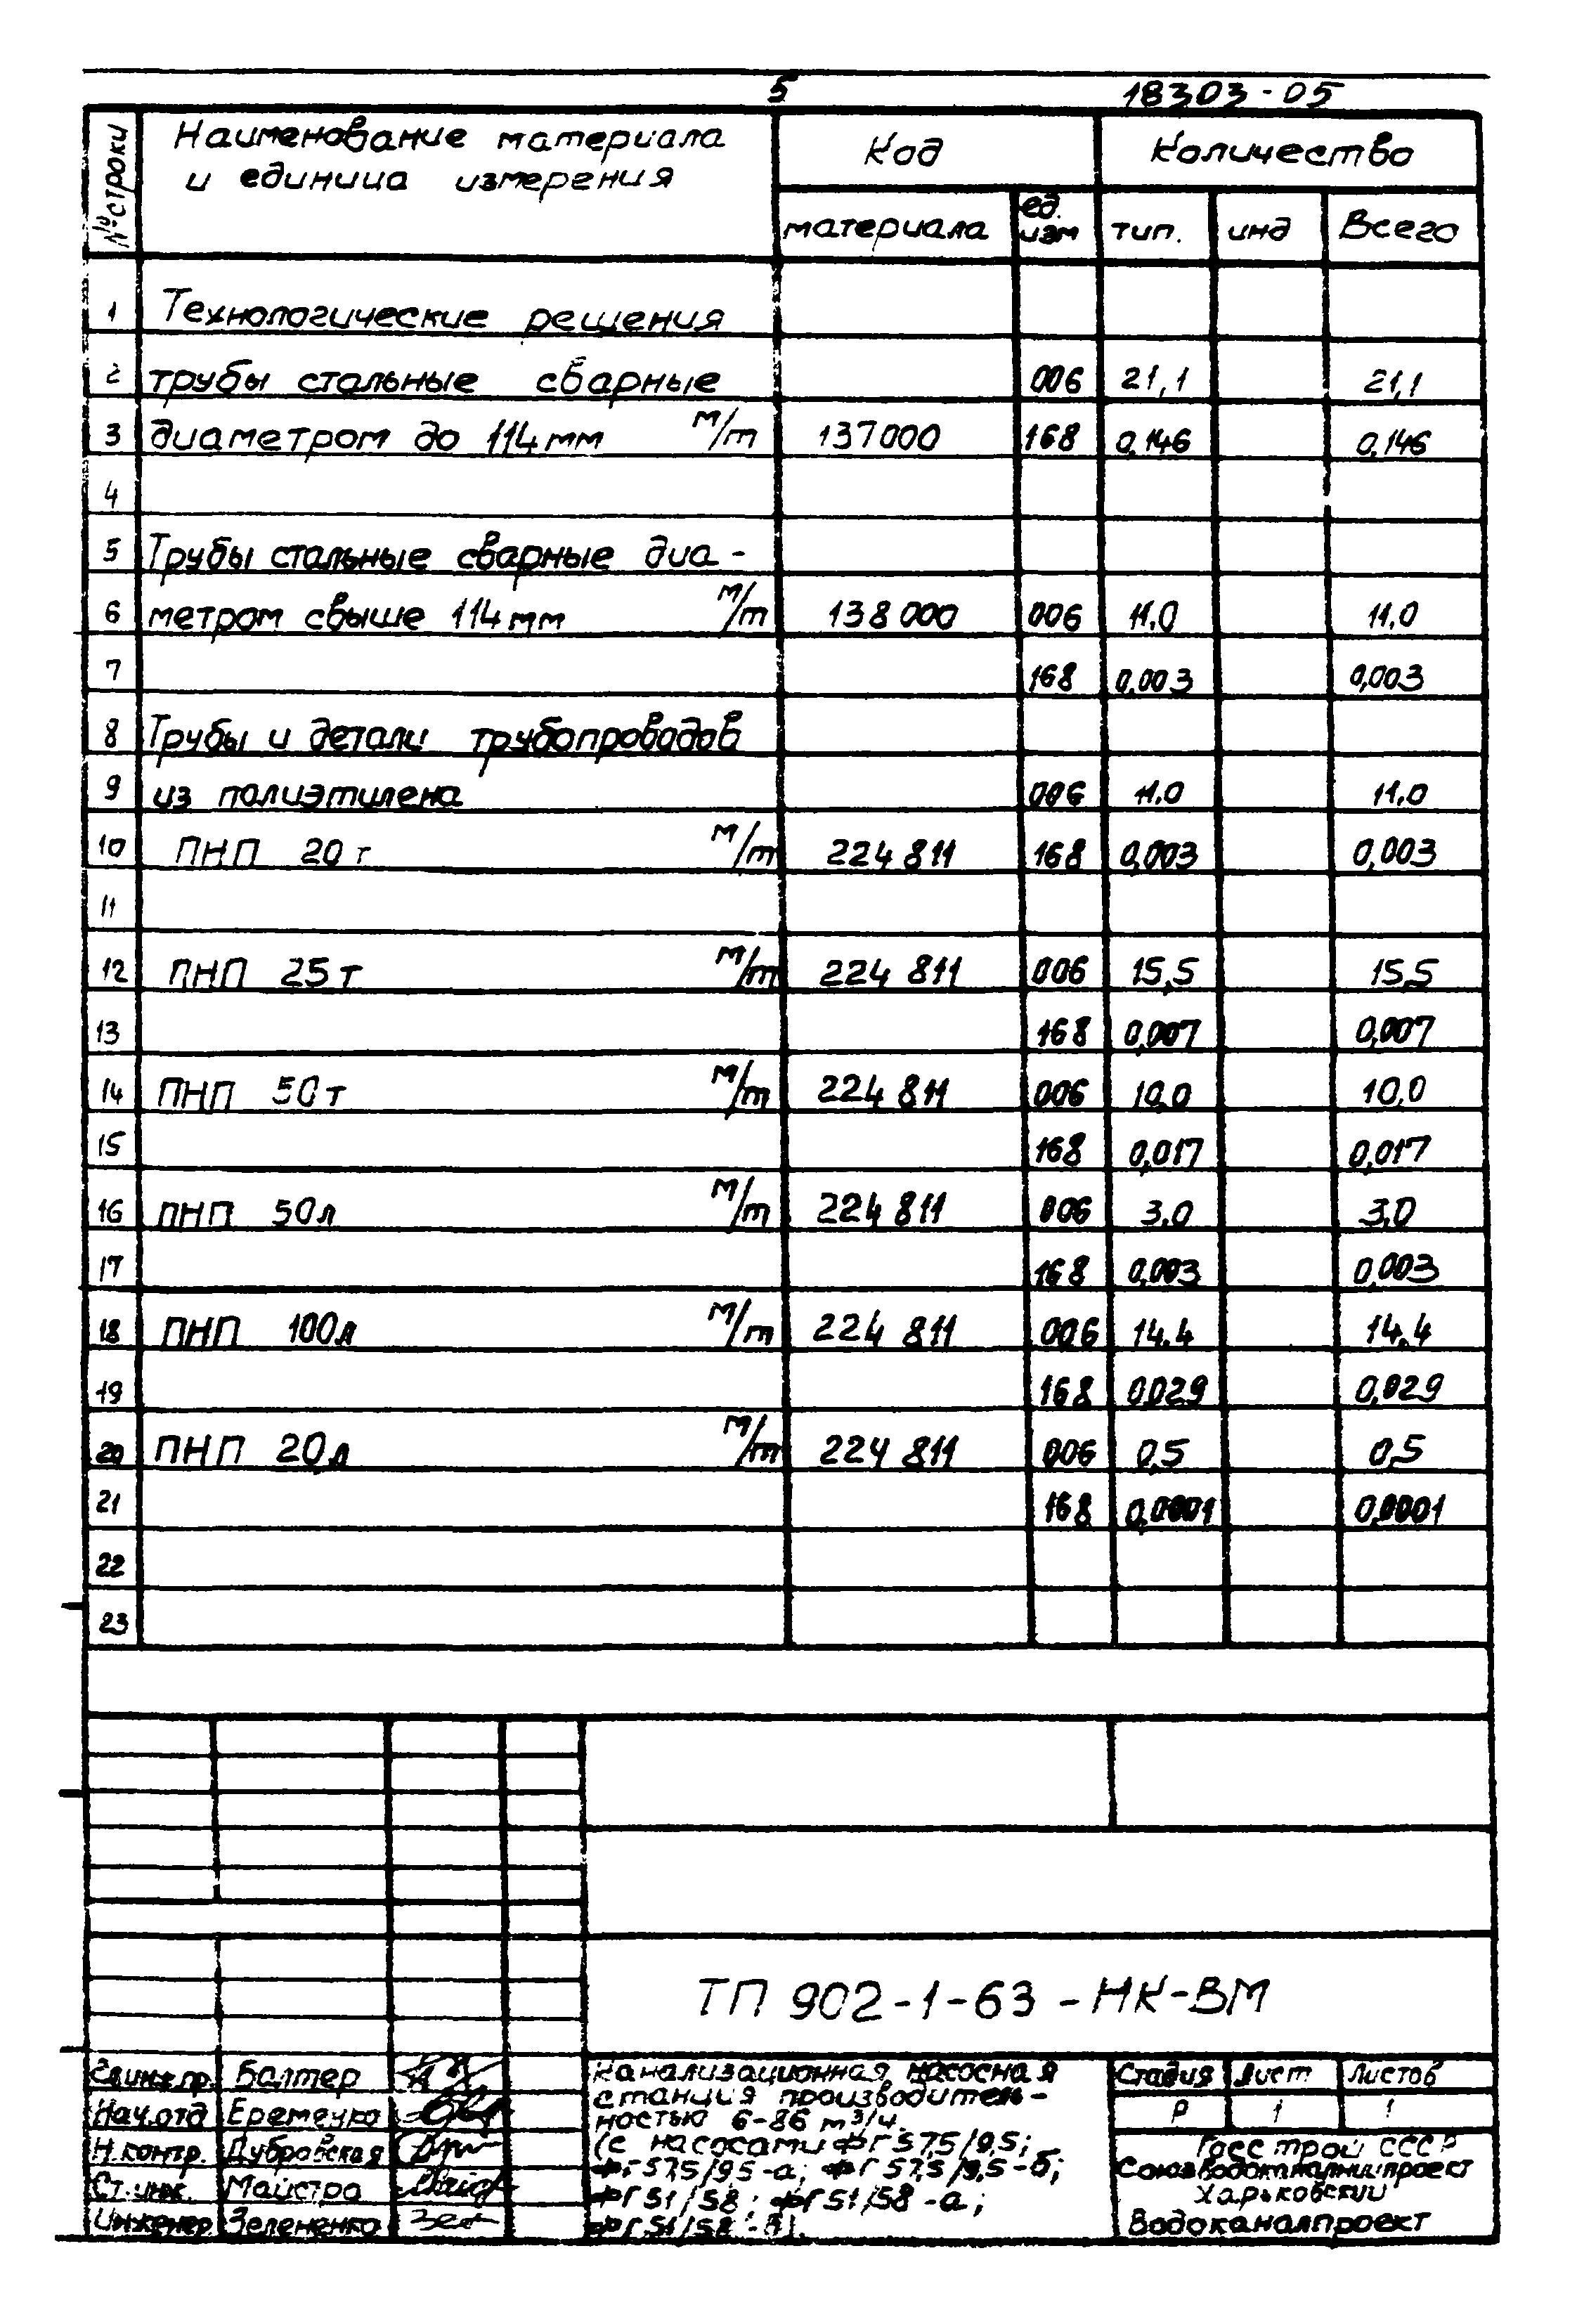 5 18303-05
№ строки Наименование материала Код Количество
и единица измерения
материала ед. изм тип. инд Всего
1 Технологические решения
2 трубы стальные сварные 006 21,1 21,1
3 диаметром до 114 мм м/т 137000 168 0,146 0,146
4
5 Трубы стальные сварные диа-
6 метром свыше 114 мм м/т 138 000 006 11.0 11.0
7 168 0,003 0,003
8 Трубы и детали трубопроводов
9 из полиэтилена 006 11.0 11.0
10 ПНП 20 т м/т 224 811 168 0,003 0,003
11
12 ПНП 25 т м/т 224 811 006 15,5 15,5
13 168 0,007 0,007
14 ПНП 50 т м/т 224 811 006 10,0 10,0
15 168 0,017 0,017
16 ПНП 50 л м/т 224 811 006 3.0 3.0
17 168 0,003 0,003
18 ПНП 100 л м/т 224 811 006 14.4 14.4
19 168 0,029 0,029
20 ПНП 20 л м/т 224 811 006 0,5 0,5
21 168 0,0001 0,0001
22
23
ТП 902-1-63-НК-ВМ
Гл.инж.пр. Балтер
Нач.отд Еременко
Н.контр. Дубровская
Ст.инж. Майстро
Инженер Зелененко
Канализационная насосная
станция производитель-
ностью 6-86 м³/ч.
(с насосами ФГ 57,5/9,5;
ФГ 57,5/9,5-а; ФГ 57,5/9,5-б;
ФГ 51/58; ФГ 51/58-а;
ФГ 51/58-б).
Стадия Лист Листов
Р 1 1
Госстрой СССР
Союзводоканалниипроект
Харьковский
Водоканалпроект